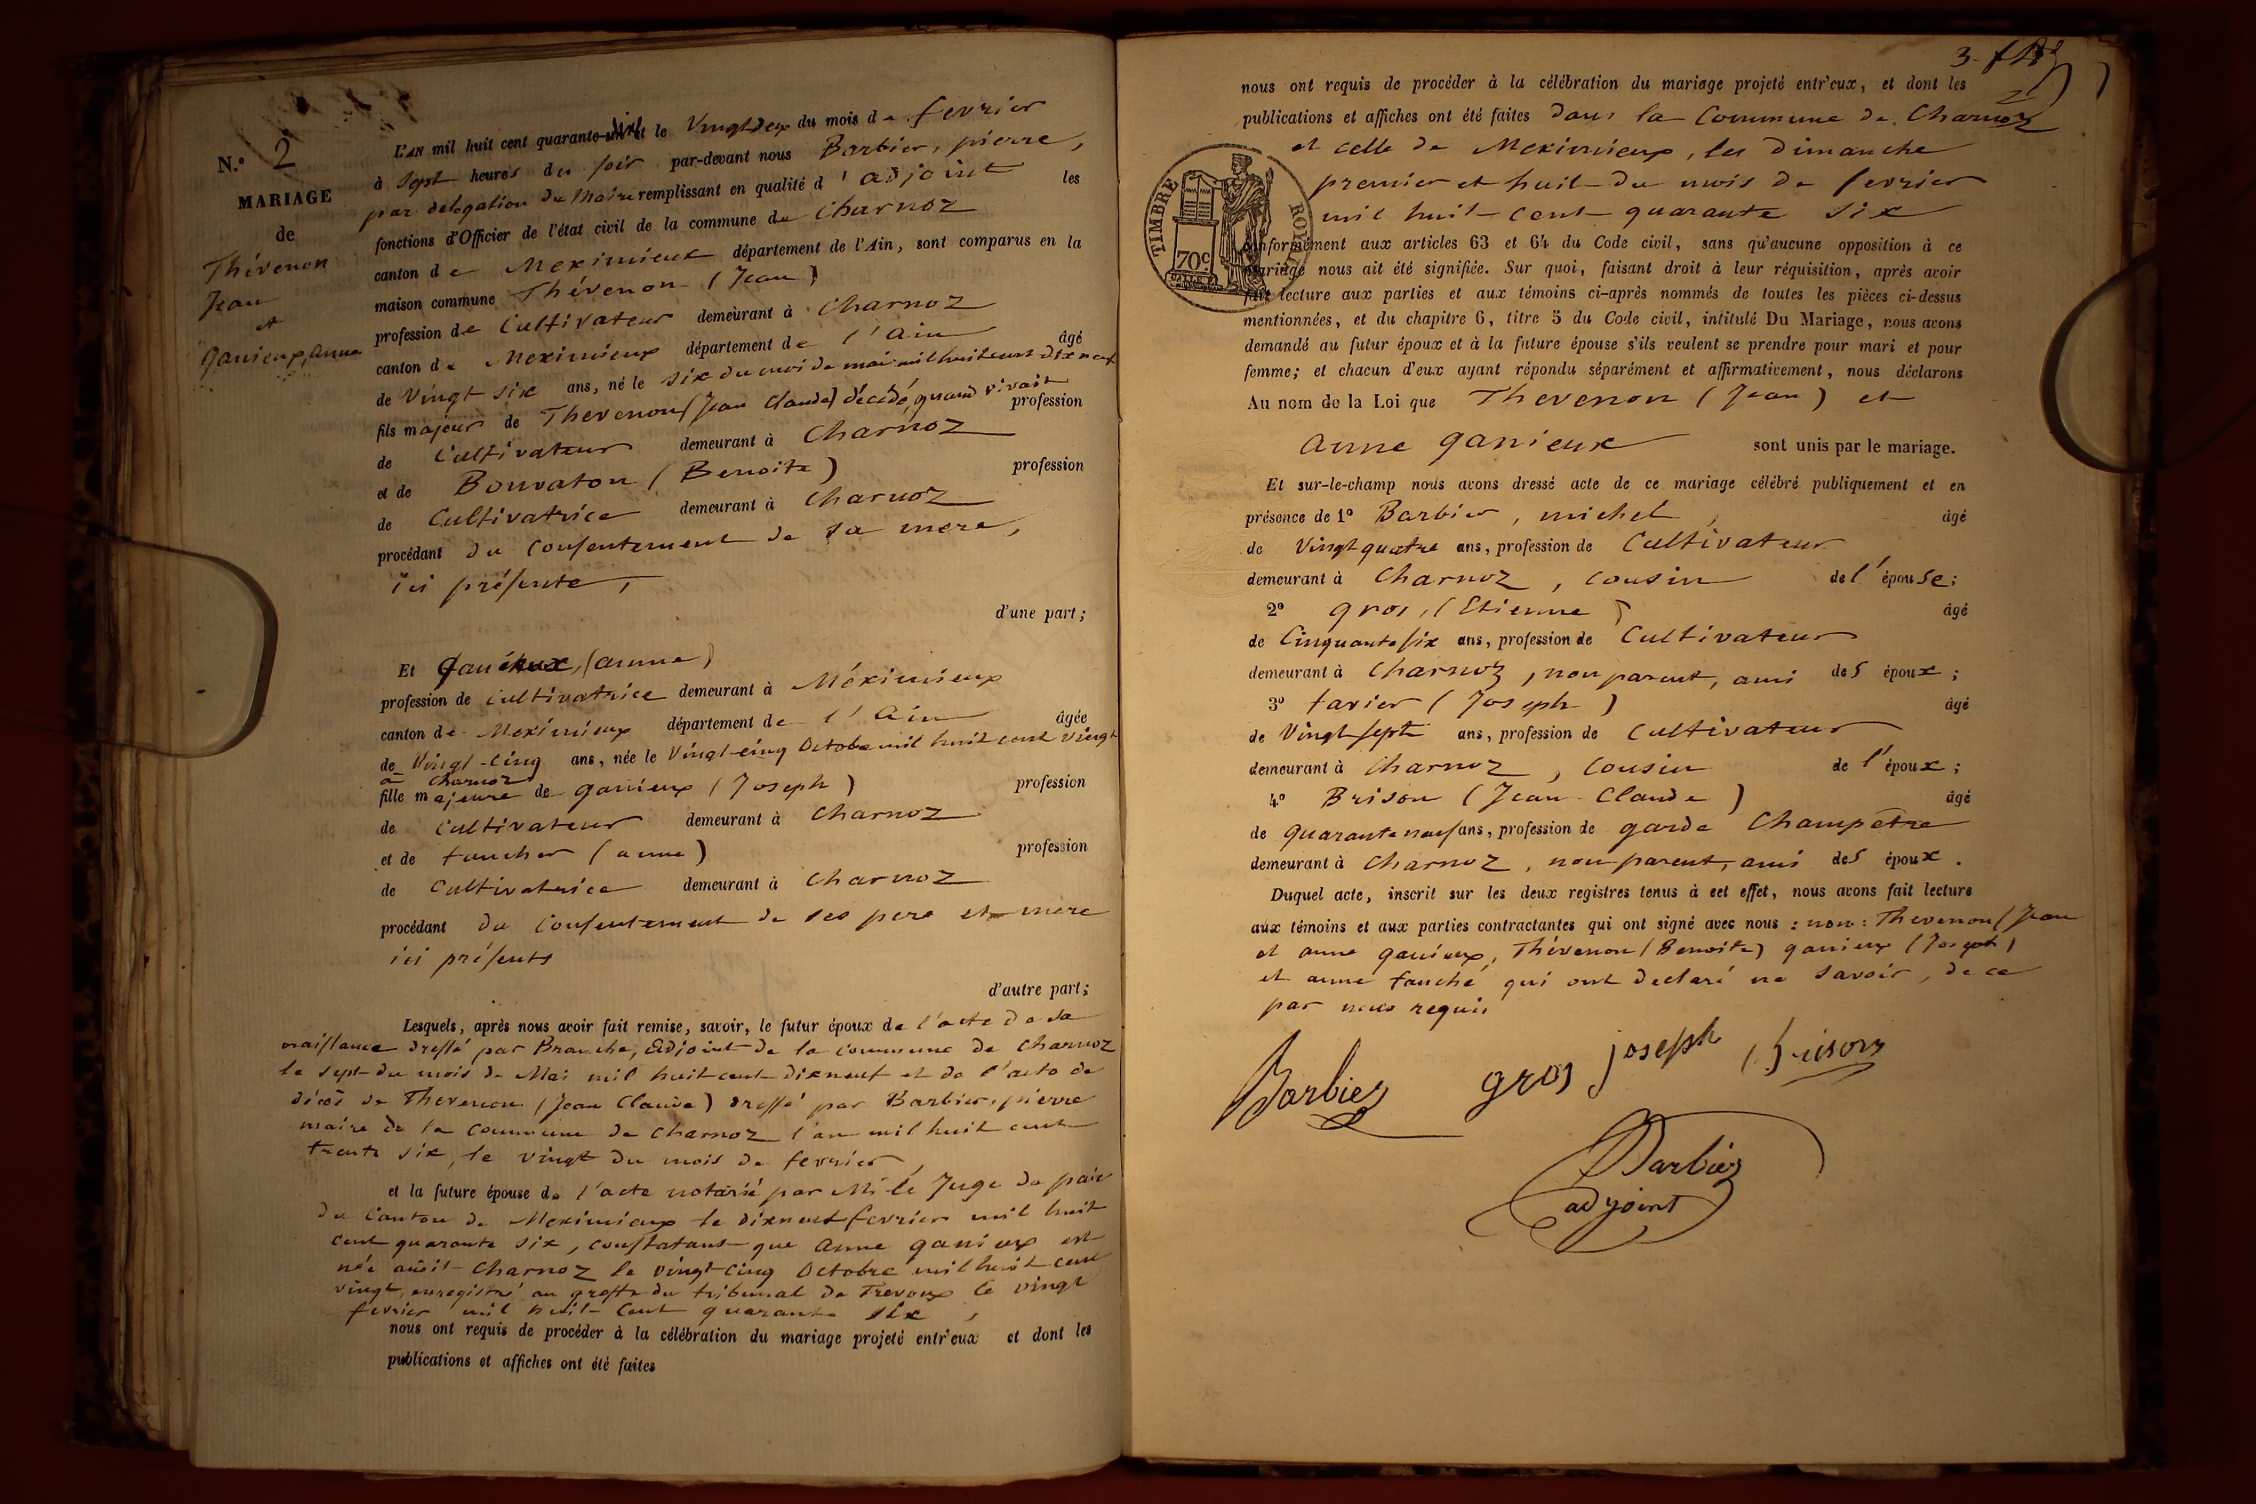 N.º 2
MARIAGE
de
Thévenon
Jean
et
ganieux, anne
L'AN mil huit cent quarante six et le Vingt deux du mois de fevrier
à sept heures du soir par-devant nous Barbier, pierre,
par délégation du Maire remplissant en qualité d'adjoint les
fonctions d'Officier de l'état civil de la commune de Charnoz
canton de Meximieux département de l'Ain, sont comparus en la
maison commune Thévenon (Jean)
profession de Cultivateur demeurant à Charnoz
canton de Meximieux département de l'Ain âgé
de Vingt six ans, né le six du moi de mai mil huit cent dix neuf
fils majeur de Thevenon (Jean Claude) décédé, quand vivait profession
de Cultivateur demeurant à Charnoz
et de Bonvaton (Benoite) profession
de Cultivatrice demeurant à Charnoz
procédant du Consentement de sa mere,
ici présente,
d'une part;
Et ganieux, (anne)
profession de Cultivatrice demeurant à Méximieux
canton de Meximieux département de l'Ain âgée
de Vingt-cinq ans, née le Vingt-cinq Octobre mil huit cent vingt
à Charnoz
fille majeure de ganieux (Joseph) profession
de Cultivateur demeurant à Charnoz
et de faucher (anne) profession
de Cultivatrice demeurant à Charnoz
procédant du Consentement de ses pere et mere
ici présents
d'autre part;
Lesquels, après nous avoir fait remise, savoir, le futur époux de l'acte de sa
naissance dressé par Branche, adjoint de la commune de Charnoz
le sept du mois de Mai mil huit cent dix neuf et de l'acte de
décès de Thevenon (Jean Claude) dressé par Barbier, pierre
maire de la commune de Charnoz l'an mil huit cent
trente six, le vingt du mois de fevrier
et la future épouse de l'acte notarié par Mr le Juge de paix
du Canton de Meximieux le dix neuf fevrier mil huit
cent quarante six, constatant que Anne ganieux est
née audit Charnoz le vingt-cinq Octobre mil huit cent
vingt, enregistré au greffe du tribunal de Trevoux le vingt
fevrier mil huit cent quarante six,
nous ont requis de procéder à la célébration du mariage projeté entr'eux et dont les
publications et affiches ont été faites
3.
nous ont requis de procéder à la célébration du mariage projeté entr'eux, et dont les
publications et affiches ont été faites dans la Commune de Charnoz
et celle de Meximieux, les dimanche
premier et huit du mois de fevrier
mil huit cent quarante six
TIMBRE ROYAL
70c
conformément aux articles 63 et 64 du Code civil, sans qu'aucune opposition à ce
mariage nous ait été signifiée. Sur quoi, faisant droit à leur réquisition, après avoir
fait lecture aux parties et aux témoins ci-après nommés de toutes les pièces ci-dessus
mentionnées, et du chapitre 6, titre 5 du Code civil, intitulé Du Mariage, nous avons
demandé au futur époux et à la future épouse s'ils veulent se prendre pour mari et pour
femme; et chacun d'eux ayant répondu séparément et affirmativement, nous déclarons
Au nom de la Loi que Thevenon (Jean) et
anne ganieux sont unis par le mariage.
Et sur-le-champ nous avons dressé acte de ce mariage célébré publiquement et en
présence de 1º Barbier, michel, âgé
de Vingt quatre ans, profession de Cultivateur
demeurant à Charnoz, cousin de l'épouse;
2º gros, (Etienne) âgé
de Cinquante six ans, profession de Cultivateur
demeurant à Charnoz, non parent, ami des époux;
3º favier (Joseph) âgé
de Vingt sept ans, profession de Cultivateur
demeurant à Charnoz, cousin de l'époux;
4º Brison (Jean-Claude) âgé
de quarante neuf ans, profession de garde Champêtre
demeurant à Charnoz, non parent, ami des époux.
Duquel acte, inscrit sur les deux registres tenus à cet effet, nous avons fait lecture
aux témoins et aux parties contractantes qui ont signé avec nous: non: Thevenon (Jean
et anne ganieux, Thévenon (Benoite) ganieux (Joseph)
et anne fauché qui ont declaré ne savoir, de ce
par nous requis
Barbier gros joseph brison
Barbier
adyoint